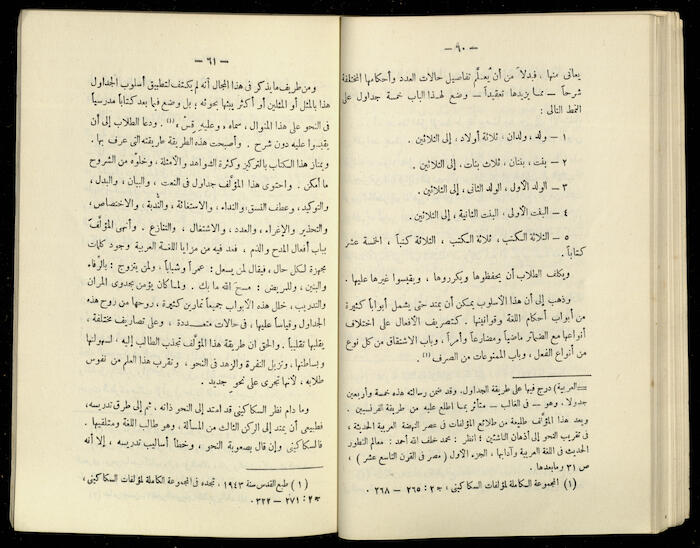 — ٦٠ —
يعانى منها ، فبدلا من أن يُعلَّم تفاصيل حالات العدد وأحكامها المختلفة
شرحاً — مما يزيدها تعقيداً — وضع لهذا الباب خمسة جداول على
النمط التالى :
١ — ولد ، ولدان ، ثلاثة أولاد ، إلى الثلاثين .
٢ — بنت ، بنتان ، ثلاث بنات ، إلى الثلاثين .
٣ — الولد الأول ، الولد الثانى ، إلى الثلاثين .
٤ — البنت الأولى ، البنت الثانية ، إلى الثلاثين .
٥ — الثلاثة الكتب ، ثلاثة الكتب ، الثلاثة كتباً ، الخمسة عشر
كتاباً .
ويكلف الطلاب أن يحفظوها ويكرروها ، ويقيسوا غيرها عليها .
وذهب إلى أن هذا الأسلوب يمكن أن يمتد حتى يشمل أبواباً كثيرة
من أبواب أحكام اللغة وقوانينها . كتصريف الأفعال على اختلاف
أنواعها مع الضمائر ماضياً ومضارعاً وأمراً ، وباب الاشتقاق من كل نوع
من أنواع الفعل ، وباب الممنوعات من الصرف (١) .
= العربية) درج فيها على طريقة الجداول. وقد ضمن رسالته هذه خمسة وأربعين
جدولا . وهو — فى الغالب — متأثر بما اطلع عليه من طريقة الفرنسيين .
ويعد هذا المؤلف طليعة من طلائع المؤلفات فى عصر النهضة العربية الحديثة ،
فى تقريب النحو إلى أذهان الناشئين : انظر : محمد خلف الله أحمد : معالم التطور
الحديث فى اللغة العربية وآدابها ، الجزء الأول ( مصر فى القرن التاسع عشر ) ،
ص ٣١ وما بعدها .
(١) المجموعة الكاملة لمؤلفات السكاكينى ، ج ٢ : ٢٦٥ — ٢٦٨
— ٦١ —
ومن طريف ما يذكر فى هذا المجال أنه لم يكتف لتطبيق أسلوب الجداول
هذا بالمثل أو المثلين أو أكثر يبثها بحوثه ؛ بل وضع فيما بعد كتاباً مدرسياً
فى النحو على هذا المنوال ، سماه ، وعليه قس ، (١) . ودعا الطلاب إلى أن
يقيسوا عليه دون شرح . وأصبحت هذه الطريقة طريقته التى عرف بها .
ويمتاز هذا الكتاب بالتركيز وكثرة الشواهد والأمثلة ، وخلوّه من الشروح
ما أمكن . واحتوى هذا المؤلَّف جداول فى النعت ، والبيان ، والبدل ،
والتوكيد ، وعطف النسق ، والنداء ، والاستغاثة ، والنُّدبة ، والاختصاص ،
والتحذير والإغراء ، والعدد ، والاشتغال ، والتنازع . وأنهى المؤلَّف
بباب أفعال المدح والذم ، فعد فيه من مزايا اللغة العربية وجود كلمات
مجهزة لكل حال ، فيقال لمن يسعل : عمراً وشباباً ؛ ولمن يتزوج : بالرِّفاء
والبنين ، وللمريض : مسح الله ما بك . ولما كان يؤمن بجدوى المران
والتدريب ، خلل هذه الأبواب جميعاً تمارين كثيرة ، روحها من روح هذه
الجداول وقياساً عليها ، فى حالات متعددة ، وعلى تصاريف مختلفة ،
يقلبها تقليباً . والحق ان طريقة هذا المؤلف تجذب الطالب إليه ، لسهولتها
وبساطتها ، وتزيل النفرة والزهد فى النحو ، وتقرب هذا العلم من نفوس
طلابه ، لأنها تجرى على نحو جديد .
وما دام نظر السكاكينى قد امتد إلى النحو ذاته ، ثم إلى طرق تدريسه ،
فطبيعى أن يمتد إلى الركن الثالث من المسألة ، وهو طالب اللغة ومتلقيها .
فالسكاكينى وإن قال بصعوبة النحو ، وخطأ أساليب تدريسه ، إلا أنه
(١) طبع القدس سنة ١٩٤٣ ، تجده فى المجموعة الكاملة لمؤلفات السكاكينى ،
ج ٢ : ٢٧١ — ٣٢٢